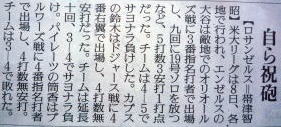 自ら祝砲
【ロサンゼルス=帯津智
昭】米大リーグは8日、各
地で行われ、エンゼルスの
大谷は敵地でのオリオール
ズ戦に3番指名打者で出場
し、九回に19号ソロを放つ
など、5打数3安打1打点
だった。チームは4―5で
サヨナラ負けした。カブス
の鈴木はドジャース戦に4
番右翼で出場し、4打数無
安打だった。チームは延長
十回、3―4でサヨナラ負
け。パイレーツの筒香はブ
ルワーズ戦に4番指名打者
で出場し、4打数無安打。
チームは3―4で敗れた。